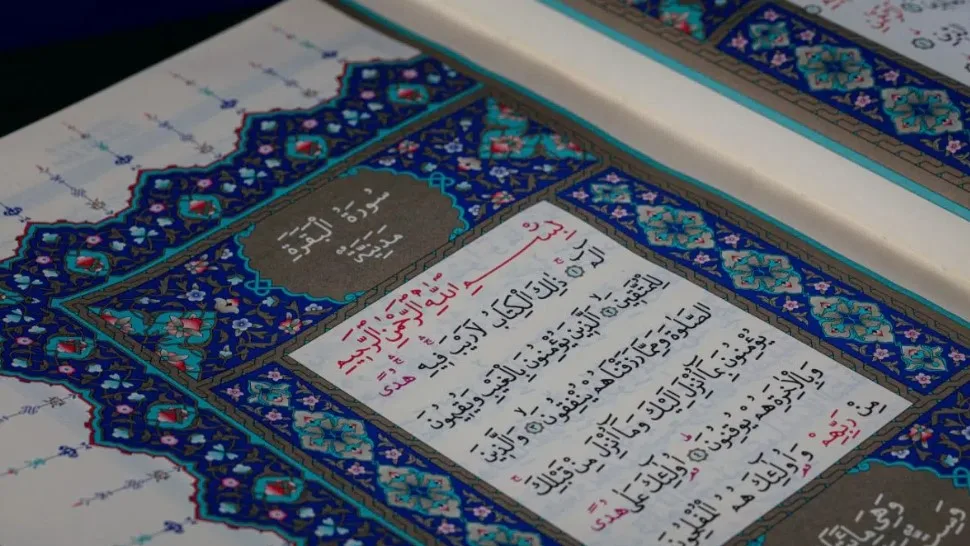 سُورَةُ الْبَقَرَةِ
مَدَنِيَّةٌ
بِسْمِ اللّٰهِ الرَّحْمٰنِ الرَّحِيمِ
الٓمٓ ۝١ ذٰلِكَ الْكِتَابُ لَا رَيْبَ فِيهِ هُدًى
لِلْمُتَّقِينَ ۝٢ اَلَّذِينَ يُؤْمِنُونَ بِالْغَيْبِ وَيُقِيمُونَ
الصَّلٰوةَ وَمِمَّا رَزَقْنَاهُمْ يُنْفِقُونَ ۝٣ وَالَّذِينَ
يُؤْمِنُونَ بِمَٓا اُنْزِلَ اِلَيْكَ وَمَٓا اُنْزِلَ مِنْ قَبْلِكَ
وَبِالْاٰخِرَةِ هُمْ يُوقِنُونَ ۝٤ اُو۬لٰٓئِكَ عَلٰى هُدًى
مِنْ رَبِّهِمْ وَاُو۬لٰٓئِكَ هُمُ الْمُفْلِحُونَ